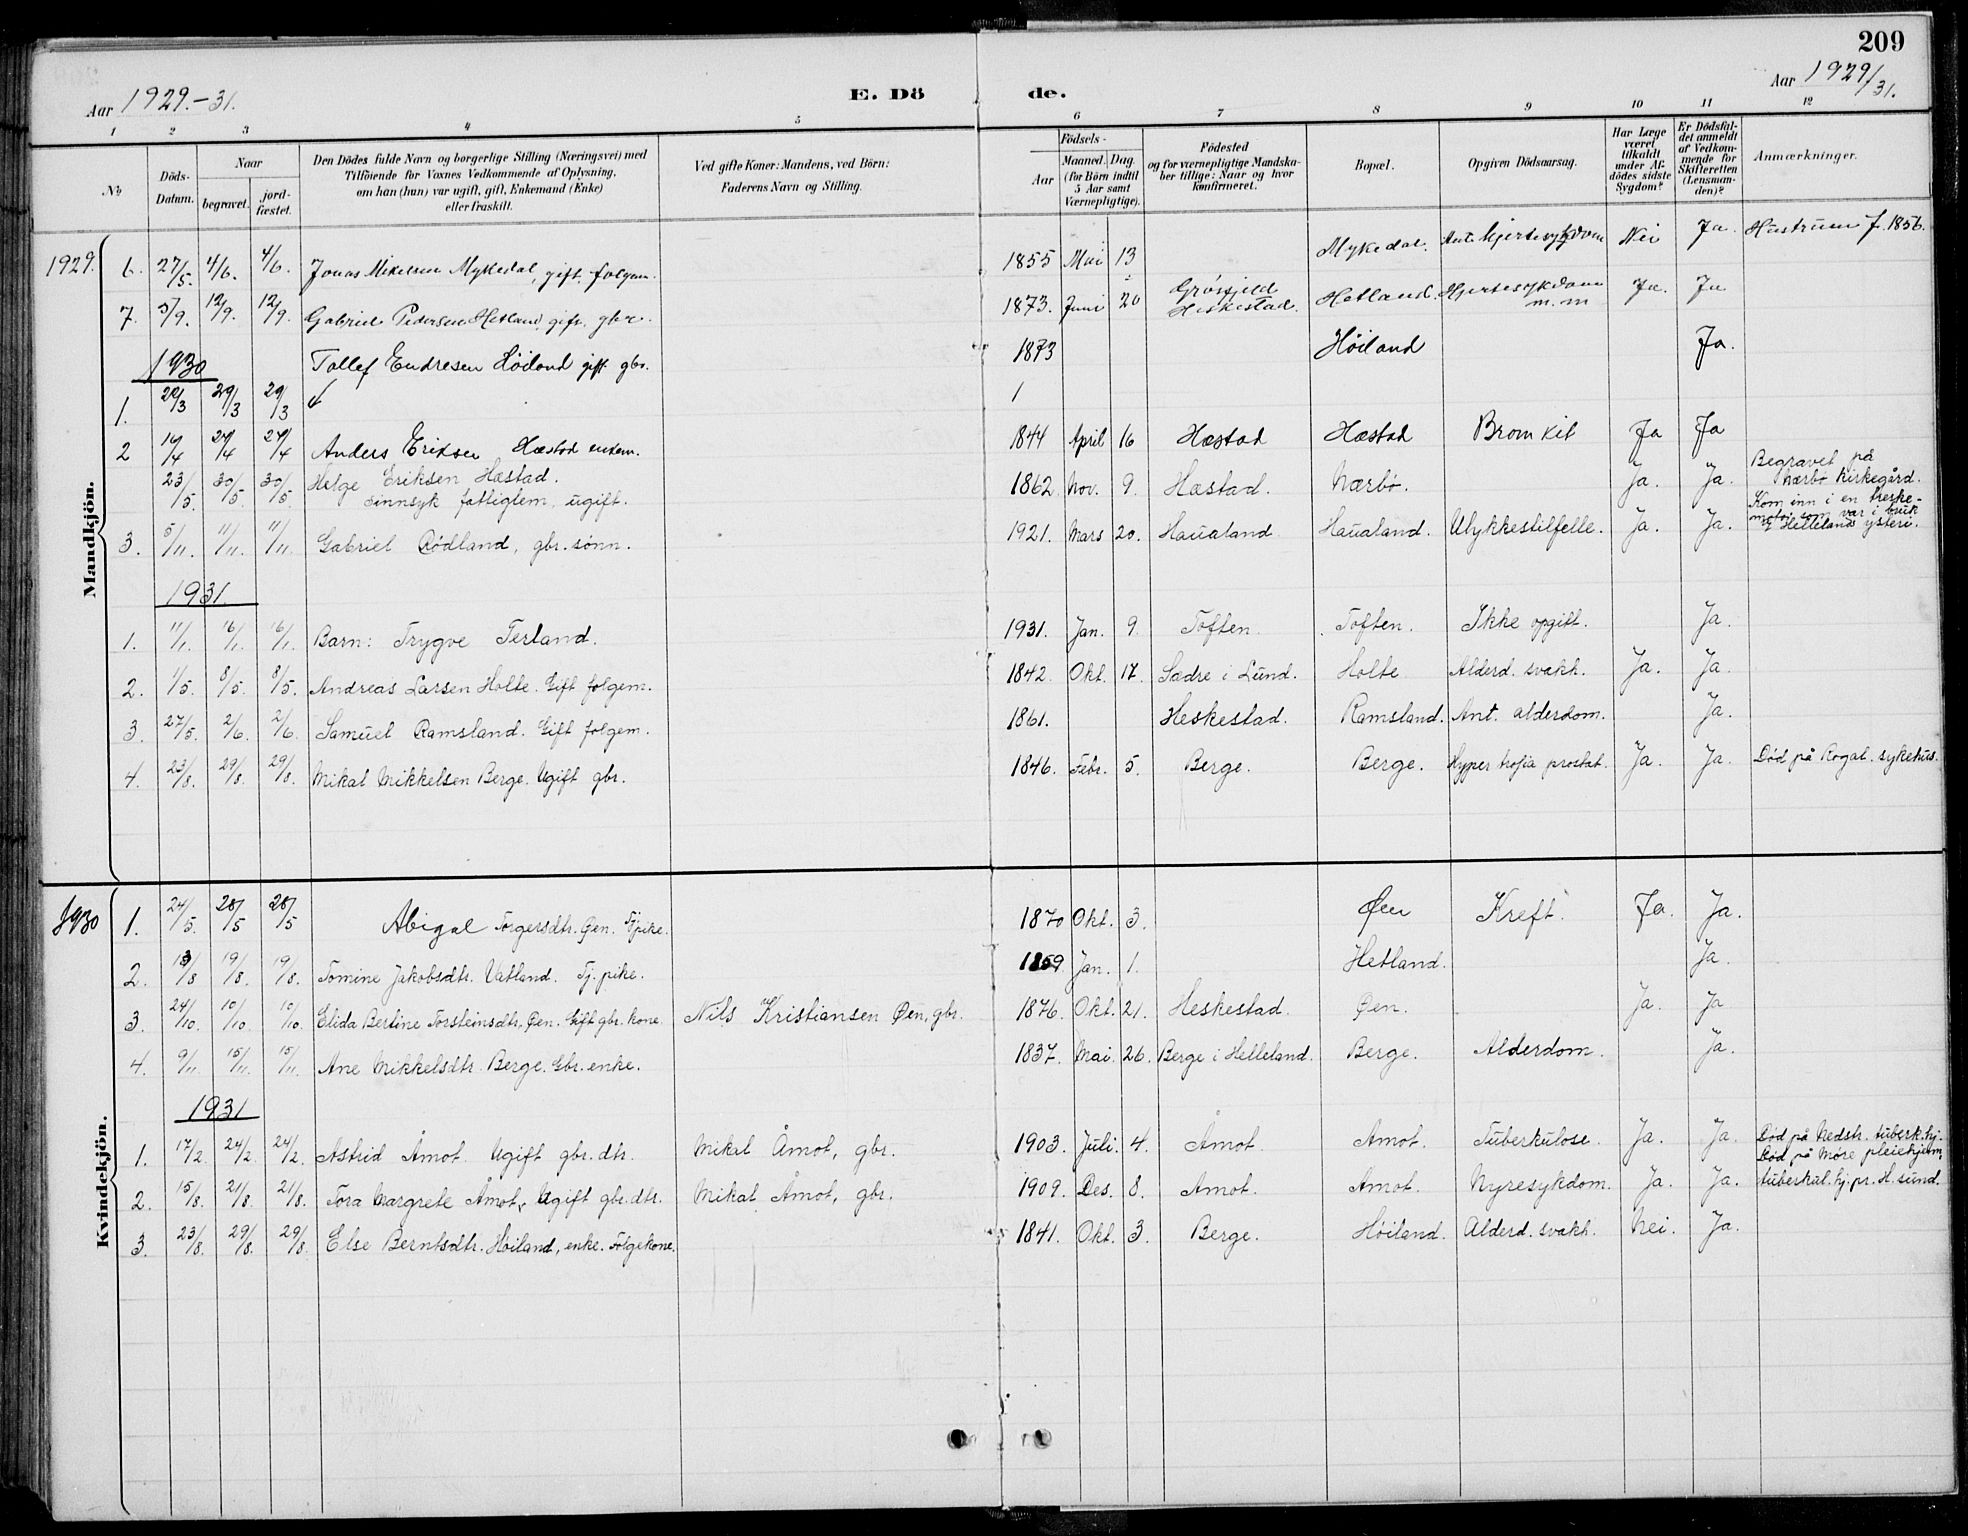 209
Aar 1929.-31.
E. Dö
de.
Aar 1929/31.
1 2 3 4 5 6 7 8 9 10 11 12
No
Döds-Datum.
Naar
begravet.
jord-fæstet.
Den Dödes fulde Navn og borgerlige Stilling (Næringsvei) med
Tilföiende for Voxnes Vedkommende af Oplysning,
om han (hun) var ugift, gift, Enkemand (Enke)
eller fraskilt.
Ved gifte Koner: Mandens, ved Börn:
Faderens Navn og Stilling.
Födsels-
Aar
Maaned. Dag.
(for Börn indtil
5 Aar samt
Værnepligtige).
Födested
og for værnepligtige Mandska-
ber tillige: Naar og hvor
konfirmeret.
Bopæl.
Opgiven Dödsaarsag.
Har Læge
været
tilkaldt
under Af-
dödes sidste
Sygdom?
Er Dödsfal-
det anmeldt
af Vedkom-
mende for
Skifteretten
(Lensman-
den)?
Anmærkninger.
Mandkjön.
1929. 6. 27/5. 4/6. 4/6. Jonas Mikelsen Mykedal, gift, folgem. 1855 Mai 13 Mykedal. Ant. hjertesykdom Nei Ja. Hustruen f. 1856.
7. 5/9. 12/9. 12/9. Gabriel Pedersen Hetland, gift, gbr. 1873. Juni 20 Grösfjeld Heskestad. Hetland. Hjertesykdom m.m Ja. Ja
1930 Tollef Endresen Höiland gift gbr. 1873 Höiland Ja.
1. 20/3 29/3 29/3
2 16/4 24/4 24/4 Anders Eriksen Hæstad enkem. 1844 April 16 Hæstad Hæstad Bronkit Ja Ja
23/5. 30/5. 30/5. Helge Eriksen Hæstad. sinnsyk fattiglem, ugift. 1862 Nov. 9. Hæstad. Nærbö. Ja. Ja. Begravet på Nærbö kirkegård.
3. 5/11. 11/11. 11/11. Gabriel Rödland, gbr. sönn. 1921. Mars 20. Haualand Haualand. Ulykkestilfelle. Ja. Ja. Kom inn i en treske-motor som var i bruk Hellelands ysteri.
1931
1. 11/1. 16/1. 16/1. Barn: Trygve Terland. 1931. Jan. 9. Toften Toften. Ikke opgitt. Ja.
2. 1/5. 8/5. 8/5. Andreas Larsen Holte. Gift folgem. 1842. Okt. 17. Sædre i Lund. Holte Alderd. svakh. Ja. Ja
3. 27/5. 2/6. 2/6. Samuel Ramsland. Gift folgem. 1861. Heskestad. Ramsland. Ant. alderdom. Ja.
4. 23/8. 29/8. 29/8. Mikal Mikkelsen Berge. Ugift gbr. 1846. Febr. 5. Berge. Berge. Hypertrofia prostat. Ja. Ja. Död på Rogal. sykehus.
Kvindekjön.
1930 1. 24/5. 28/5 28/5 Abigal Torgersdtr. Øen. Tj.pike. 1870 Okt. 3. Øen Kreft. Ja. Ja.
2. 13/8 19/8. 19/8. Tomine Jakobsdtr. Vatland. Tj. pike. 1859. Jan. 1. Hetland. Ja.
3. 24/10. 10/10. 10/10. Elida Bertine Torsteinsdtr. Øen. Gift gbr. kone. Nils Kristiansen Øen, gbr. 1876. Okt. 21. Heskestad. Øen. Ja. Ja
4. 9/11 15/11. 15/11. Ane Mikkelsdtr. Berge. Gbr. enke. 1837. Mai. 26. Berge i Helleland. Berge. Alderdom. Ja.
1931
1. 17/2 24/2. 24/2. Astrid Åmot. Ugift gbr. dtr. Mikal Åmot, gbr. 1903. Juli. 4. Åmot. Amot. Tuberkulose. Ja. Ja. Död på Nedstr. tuberk.hj.
2. 15/8. 21/8. 21/8. Tora Margrete Åmot, Ugift gbr. dtr. Mikal Åmot, gbr. 1909. Des. 8. Amot. Amot. Nyresykdom. Ja. Ja. Död på Möre pleiehjem, tuberkul.hj. pr. H.sund.
3. 23/8. 29/8. 29/8. Else Berntsdtr. Höiland, enke. Fölgekone. 1841. Okt. 3. Berge. Höiland. Alderd. svakh. Nei. Ja.